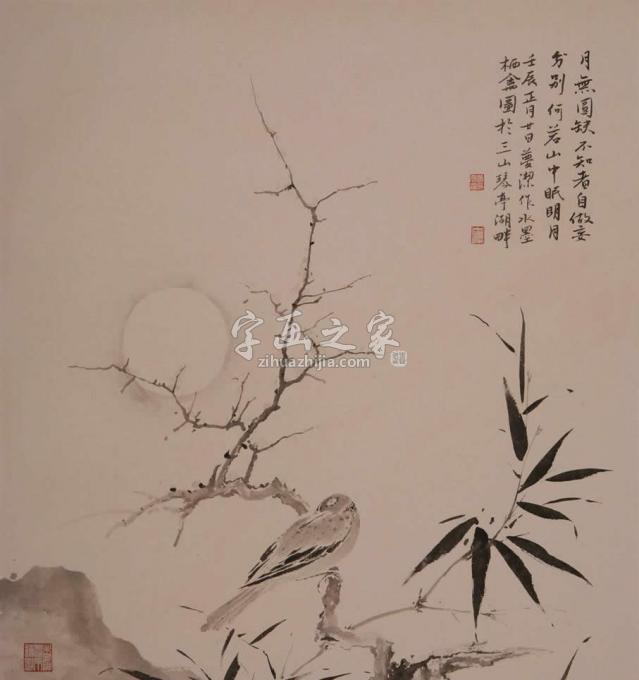 月無圓缺不知者自做妄
分別何若山中眠明月
壬辰正月廿日夢潔作水墨
栖禽圖於三山琴亭湖畔
字画之家
zihuazhijia.com